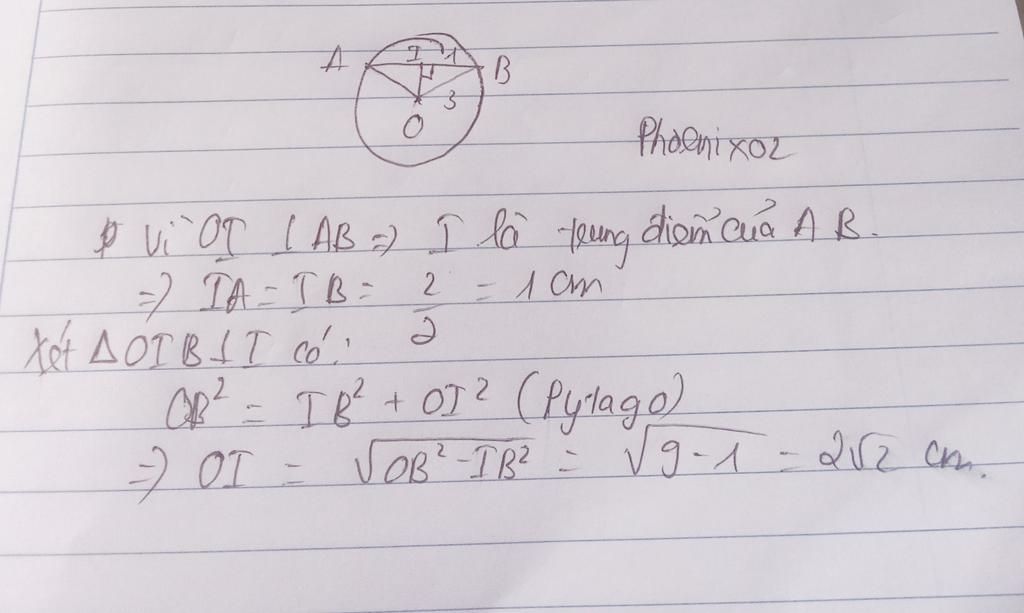 A I 1 B
3
O
Phoenix02
Vì OI ⊥ AB => I là trung điểm của A B.
=> IA = IB = 2/2 = 1 cm
Xét Δ OIB ⊥ I có:
OB² = IB² + OI² (Pytago)
=> OI = √(OB² - IB²) = √(9-1) = 2√2 cm.